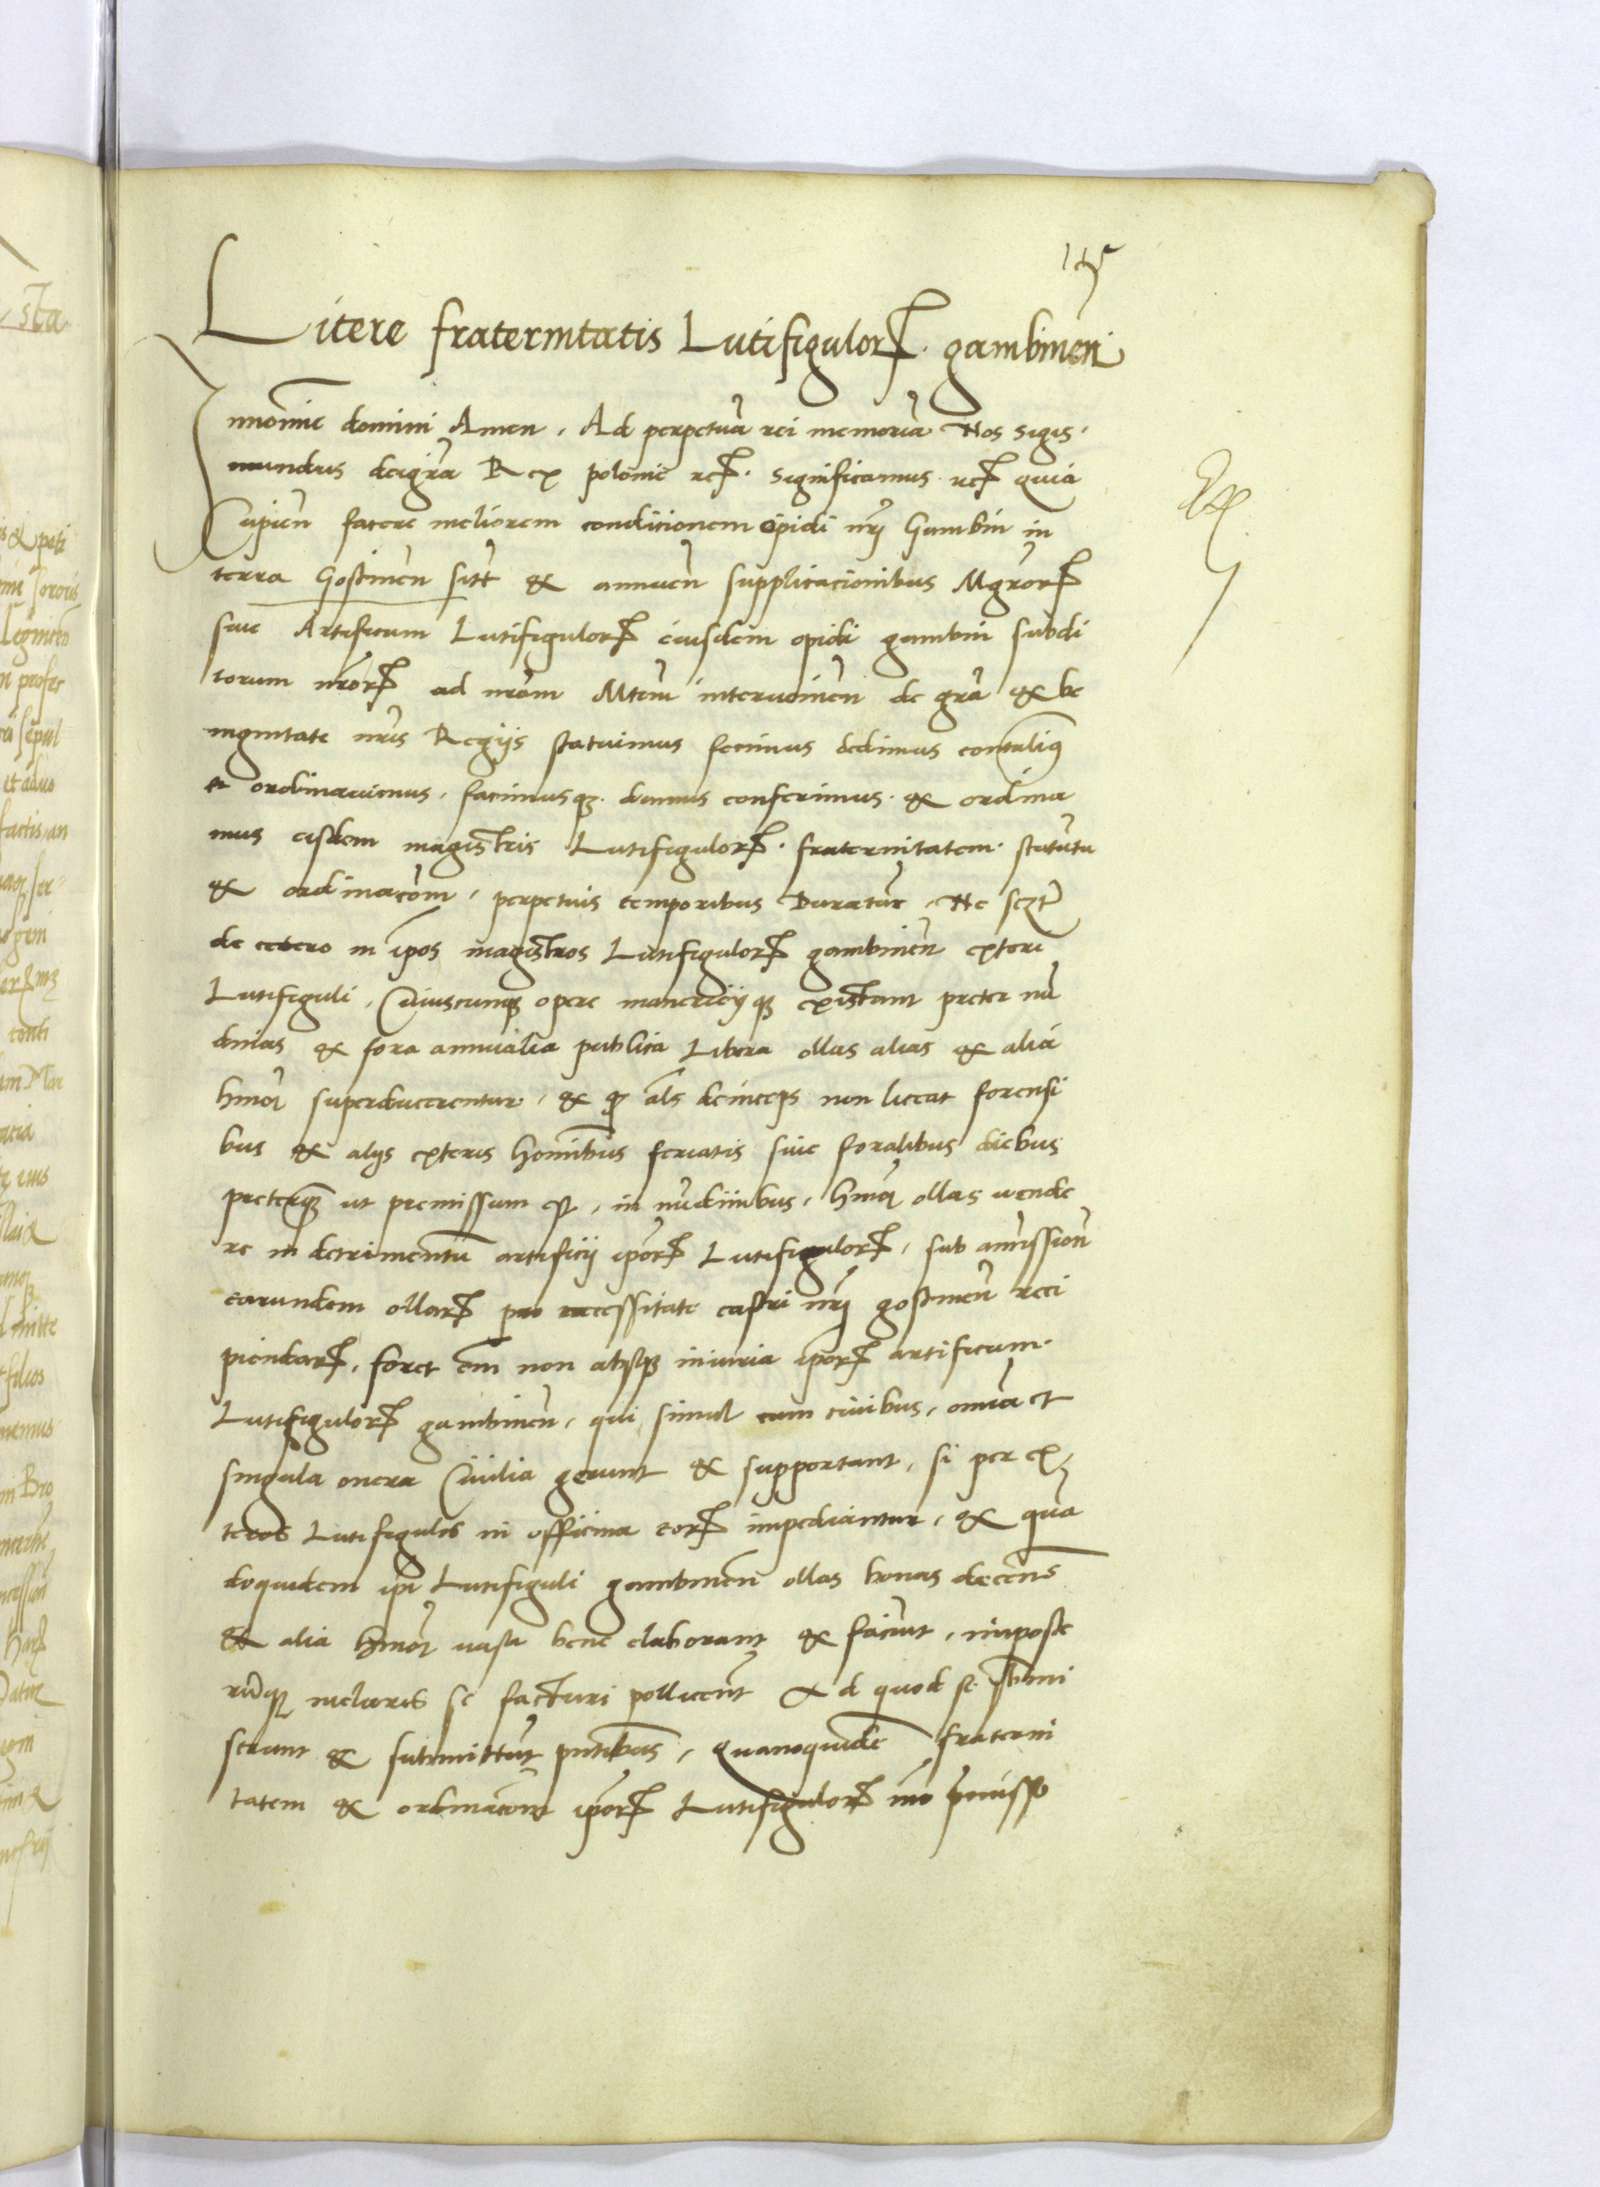 145
Litere fraternitatis Lutifigulorꝝ gambinen̄
In nomīe domini Amen. Ad perpetuā rei memoriā Nos Sigis-
mundus dei gr̄a Rex polonie etc. Significamus etc quia
Cupien̄ facere meliorem conditionem opidi nr̄i Gambin in
terra Gostinen̄ sitt̄ & annuen̄ supplicacionibus Mgr̄orꝝ
siue Artificum Lutifigulorꝝ eiusdem opidi gambin subdi
torum nr̄orꝝ ad nrām Mtem̄ interuenien̄ de grā & be
nignitate nr̄is Regijs statuimus fecimus dedimus contulimꝰ
et ordinauimus, facimusqꝫ damus conferimus & ordina
mus eisdem magistris Lutifigulorꝝ fraternitatem statuta
& ordinacōm, perpetuis temporibus Duratur̄, Ne
de cetero in ip̄os magistros Lutifigulorꝝ gambinen̄ exteri
Lutifiguli, Cuiuscunqꝫ opere maneriejqꝫ existant preter nū
dinas & fora annualia publica Libera ollas alias & alia
hmōi superducerentur, & als̄ deinceps non liceat forensi
bus & alijs exteris hominibus feriatis siue foralibus diebus
preterqꝫ ut premissum est, in nūdinibus, hmōi ollas vende
re in detrimentū artificij ip̄orꝝ Lutifigulorꝝ, sub amissionē
earundem ollarꝝ pro necessitate castri nr̄i gostinen̄ reci
piendarꝝ, foret em̄ non absqꝫ iniuria ip̄orꝝ artificum
Lutifigulorꝝ gambinen̄, qui simul cum ciuibus, omnia et
singula onera Ciuilia gerunt & supportant, si per ex-
teros Lutifigulos in officina eorꝝ impediantur, & quā
doquidem ip̄i Lutifiguli gambinen̄ ollas bonas decen̄s
& alia hmōi vasa bene elaborant & faciūt, imposte
rūqꝫ meliores se facturi pollicent̄ Ad quod se sb̄mi
serunt & submittūt pn̄tibus, Quamquidē fraterni
tatem & ordinacōm ip̄orꝝ Lutifigulorꝝ mō premisso